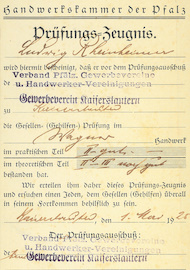 Handwerkskammer der Pfalz
Prüfungs-Zeugnis.
Ludwig
wird hiermit bezeugt, daß er vor dem Prüfungsausschuß
Verband Pfälz. Gewerbevereine
u. Handwerker-Vereinigungen
Gewerbeverein Kaiserslautern
die Gesellen-(Gehilfen-)Prüfung im
Wagner Handwerk
im praktischen Teil II gut
im theoretischen Teil
Wir erteilen ihm daher dieses Prüfungs-Zeugnis und
ersuchen einen Jeden, dem Gesellen (Gehilfen) überall
seinem Fortkommen behilflich zu sein.
1. Mai 1925
Der Prüfungsausschuß:
Verband Pfälz. Gewerbevereine
u. Handwerker-Vereinigungen
Gewerbeverein Kaiserslautern